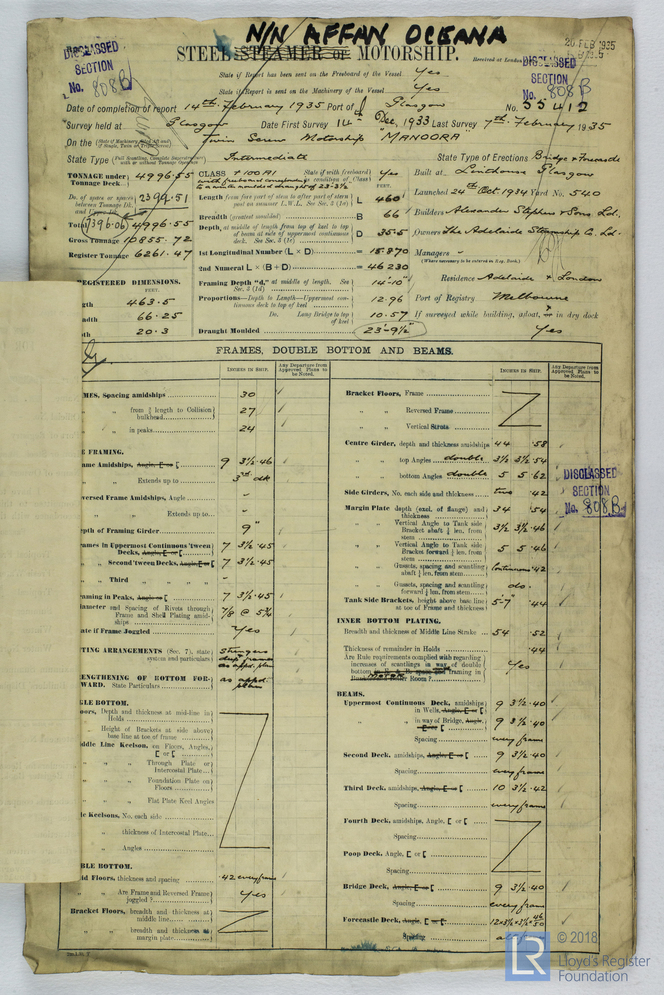 N/N AFFAN OCEANA
20 FEB 1935
DISCLASSED
SECTION
No. 808B
STEEL STEAMER OR MOTORSHIP.
Received at London
DISCLASSED
SECTION
No. 808B
State if Report has been sent on the Freeboard of the Vessel Yes
State if Report is sent on the Machinery of the Vessel Yes
Date of completion of report 14th February 1935 Port of Glasgow No. 55412
Survey held at Glasgow Date First Survey 14 Dec, 1933 Last Survey 7th February 1935
On the Twin Screw Motorship "MANOORA"
State Type Intermediate State Type of Erections Bridge & Forecastle
TONNAGE under Tonnage Deck 4996.55
Do. of space or spaces between Tonnage Dk. and Upper Dk. 2399.51
Total 4996.55
(7396.06)
Gross Tonnage 10855.72
Register Tonnage 6261.47
CLASS +100A1 State if with freeboard Yes
with freeboard corresponding to a moulded draught of 23-9½
Length from fore part of stem to after part of stern post on summer L.W.L. See Sec. 3 (1c) L 460
Breadth (greatest moulded) B 66
Depth, at middle of length from top of keel to top of beam at side of uppermost continuous deck. See Sec. 3 (1c) D 35.5
1st Longitudinal Number (L × D) = 
2nd Numeral L × (B + D) = 46230
Framing Depth "d," at middle of length. See Sec. 3 (1d) 14'-10"
Proportions—Depth to Length—Uppermost continuous deck to top of keel 12.96
Do. Long Bridge to top of keel 10.57
Draught Moulded 23'-9½"
Built at Linthouse Glasgow
Launched 24th Oct. 1934 Yard No. 540
Builders Alexander Stephen & Sons Ld.
Owners The Adelaide Steamship Co. Ld.
Managers -
(Where necessary to be entered in Reg. Book)
Residence Adelaide & London
Port of Registry Melbourne
If surveyed while building, afloat, or in dry dock
Yes
REGISTERED DIMENSIONS.
FEET.
ngth 463.5
eadth 66.25
pth 20.3
FRAMES, DOUBLE BOTTOM AND BEAMS.
INCHES IN SHIP.
Any Departure from Approved Plans to be Noted.
INCHES IN SHIP.
Any Departure from Approved Plans to be Noted.
MES, Spacing amidships 30
" " from ⅗ length to Collision bulkhead 27
" " in peaks 24
E FRAMING.
ame Amidships, Angle, E or [ 9 3½ .46
" " Extends up to 3rd dk
versed Frame Amidships, Angle -
" " Extends up to -
epth of Framing Girder 9"
rames in Uppermost Continuous 'tween Decks, Angle, E or [ 7 3½ .45
" " Second 'tween Decks, Angle, E or [ 7 3½ .45
" " Third " " " " -
raming in Peaks, Angle or [ 7 3½ .45
iameter and Spacing of Rivets through Frame and Shell Plating amidships 7/8 @ 5¾
ate if Frame Joggled Yes
TING ARRANGEMENTS (Sec. 7), state system and particulars Stringers deep frames as appd. plan
ENGTHENING OF BOTTOM FORWARD. State Particulars as appd. plan
GLE BOTTOM.
oors, Depth and thickness at mid-line in Holds
" Height of Brackets at side above base line at toe of frame
iddle Line Keelson, on Floors, Angles, E or [
" " Through Plate or Intercostal Plate
" " Foundation Plate on Floors
" " Flat Plate Keel Angles
de Keelsons, No. each side
" " thickness of Intercostal Plate
" " Angles
BLE BOTTOM.
lid Floors, thickness and spacing .42 every frame
" " Are Frame and Reversed Frame joggled? Yes
Bracket Floors, breadth and thickness at middle line
" " breadth and thickness at margin plate
Bracket Floors, Frame
" " Reversed Frame
" " Vertical Struts
Centre Girder, depth and thickness amidships 44 .58
" " top Angles double 3½ 3½ .54
" " bottom Angles double 5 5 .62
Side Girders, No. each side and thickness two .42
Margin Plate depth (excl. of flange) and thickness 34 .54
" " Vertical Angle to Tank side Bracket abaft ¼ len. from stem 3½ 3½ .46
" " Vertical Angle to Tank side Bracket forward ¼ len. from stem 5 5 .46
" " Gussets, spacing and scantling abaft ¼ len. from stem Continuous .42
" " Gussets, spacing and scantling forward ¼ len. from stem do.
Tank Side Brackets, height above base line at toe of Frame and thickness 5'-7" .44
DISCLASSED
SECTION
No. 808B
INNER BOTTOM PLATING.
Breadth and thickness of Middle Line Strake 54 .52
Thickness of remainder in Holds .44
Are Rule requirements complied with regarding increases of scantlings in way of double bottom Yes
BEAMS.
Uppermost Continuous Deck, amidships in Wells, Angle, E or [ 9 3½ .40
" " in way of Bridge, Angle, E or [ 9 3½ .40
Spacing every frame
Second Deck, amidships, Angle, E or [ 9 3½ .40
Spacing every frame
Third Deck, amidships, Angle, E or [ 10 3½ .42
Spacing every frame
Fourth Deck, amidships, Angle, E or [
Spacing
Poop Deck, Angle, E or [
Spacing
Bridge Deck, Angle, E or [ 9 3½ .40
Spacing every frame
Forecastle Deck, Angle, E or [ 12×3½×3½ 46/50
Spacing
LR
© 2018
Lloyd's Register
Foundation